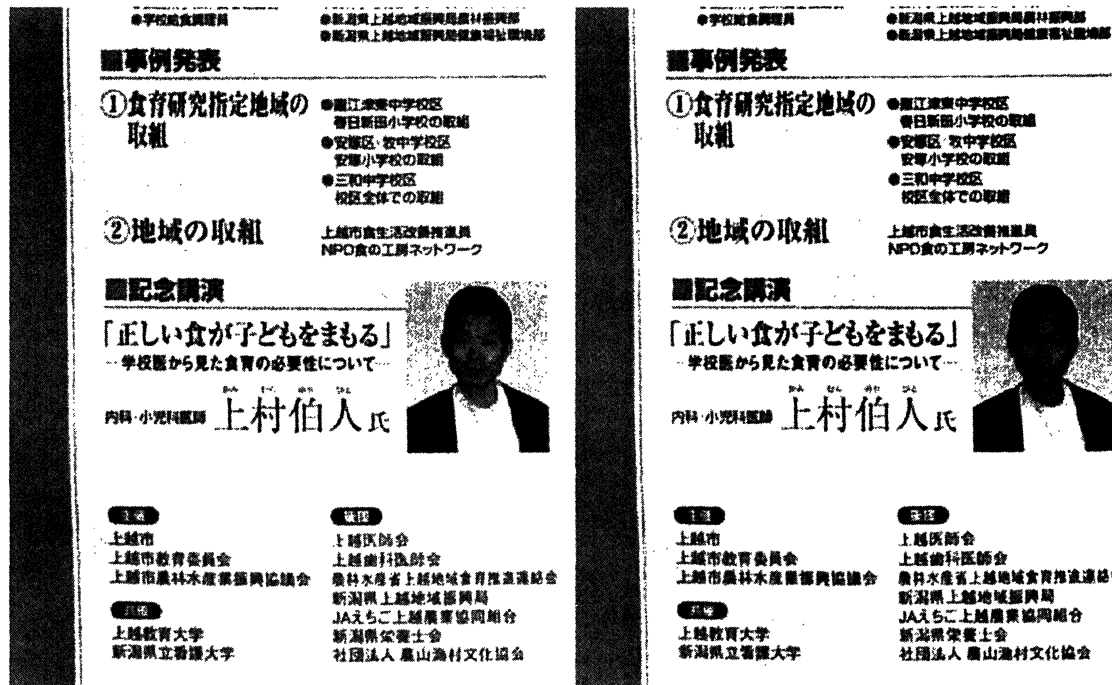 ●学校給食調理員
●新潟県上越地域振興局農林振興部
●新潟県上越地域振興局健康福祉環境部
■事例発表
①食育研究指定地域の
取組
●直江津東中学校区
春日新田小学校の取組
●安塚区・牧中学校区
安塚小学校の取組
●三和中学校区
校区全体での取組
②地域の取組
上越市食生活改善推進員
NPO食の工房ネットワーク
■記念講演
「正しい食が子どもをまもる」
…学校医から見た食育の必要性について…
内科・小児科医師 上村伯人氏
主催
上越市
上越市教育委員会
上越市農林水産業振興協議会
共催
上越教育大学
新潟県立看護大学
後援
上越医師会
上越歯科医師会
農林水産省上越地域食育推進連絡会
新潟県上越地域振興局
JAえちご上越農業協同組合
新潟県栄養士会
社団法人 農山漁村文化協会
●学校給食調理員
●新潟県上越地域振興局農林振興部
●新潟県上越地域振興局健康福祉環境部
■事例発表
①食育研究指定地域の
取組
●直江津東中学校区
春日新田小学校の取組
●安塚区・牧中学校区
安塚小学校の取組
●三和中学校区
校区全体での取組
②地域の取組
上越市食生活改善推進員
NPO食の工房ネットワーク
■記念講演
「正しい食が子どもをまもる」
…学校医から見た食育の必要性について…
かみ むら のり ひと
内科・小児科医師 上村伯人氏
主催
上越市
上越市教育委員会
上越市農林水産業振興協議会
共催
上越教育大学
新潟県立看護大学
後援
上越医師会
上越歯科医師会
農林水産省上越地域食育推進連絡
新潟県上越地域振興局
JAえちご上越農業協同組合
新潟県栄養士会
社団法人 農山漁村文化協会